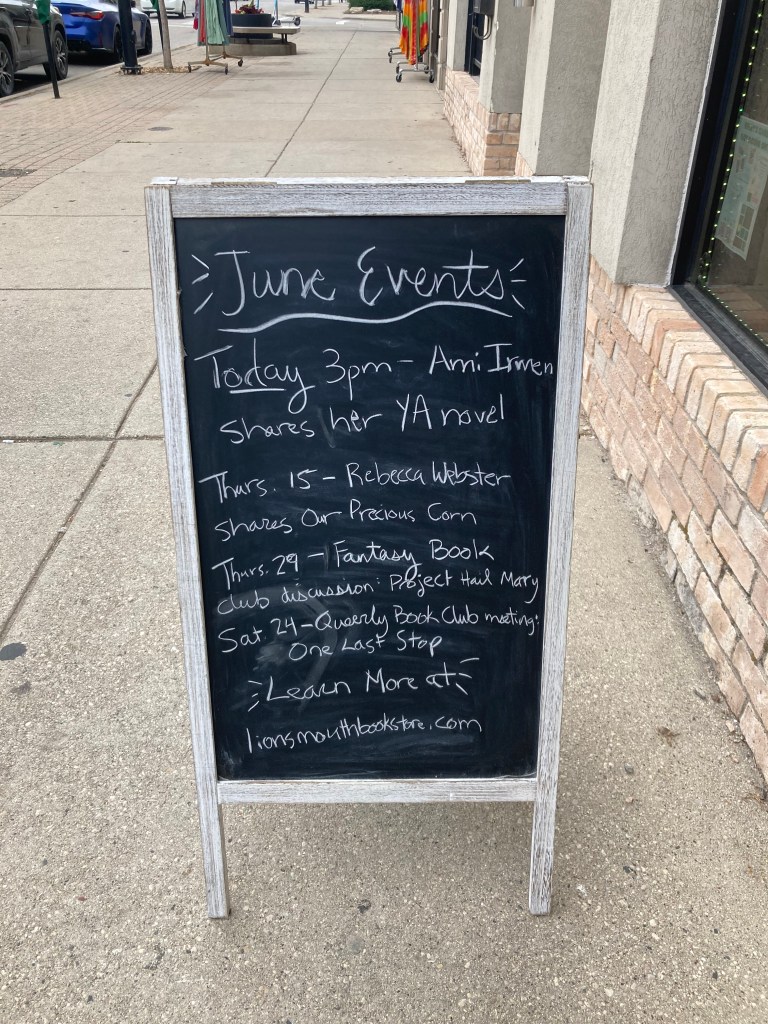 June Events
Today 3pm - Ami Irmen
shares her YA novel
Thurs. 15 - Rebecca Webster
shares Our Precious Corn
Thurs. 29 - Fantasy Book
club discussion: Project Hail Mary
Sat. 24 - Queerly Book Club meeting:
One Last Stop
Learn More at
lionsmouthbookstore.com